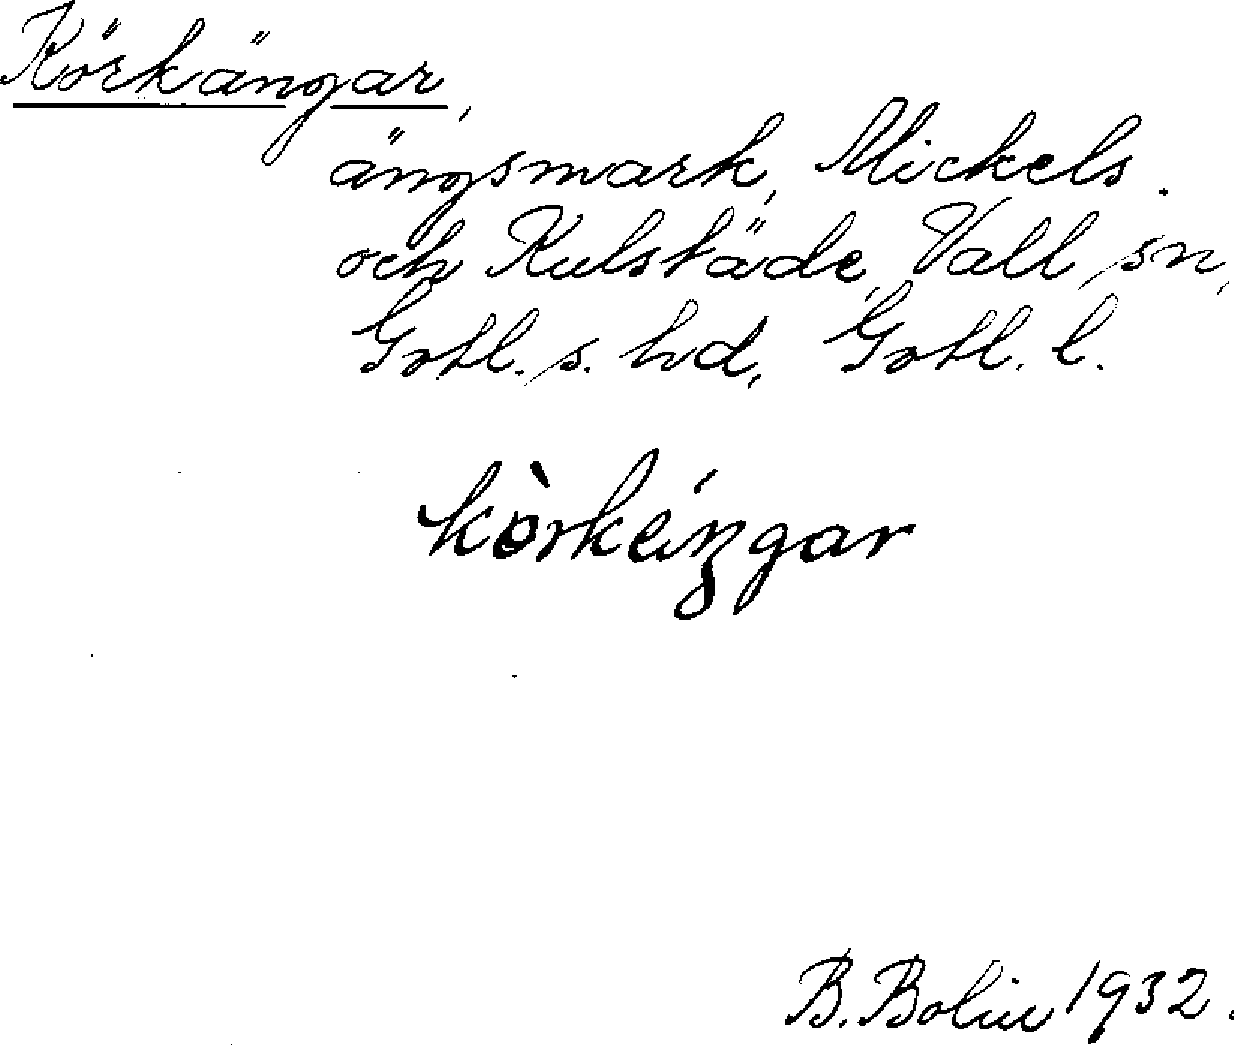 Körkängar,
ängsmark, Mickels.
och Kulstäde, Vall sn,
Gotl. s. hd, Gotl. l.
kòrkéiŋgar
B. Bolin 1932.